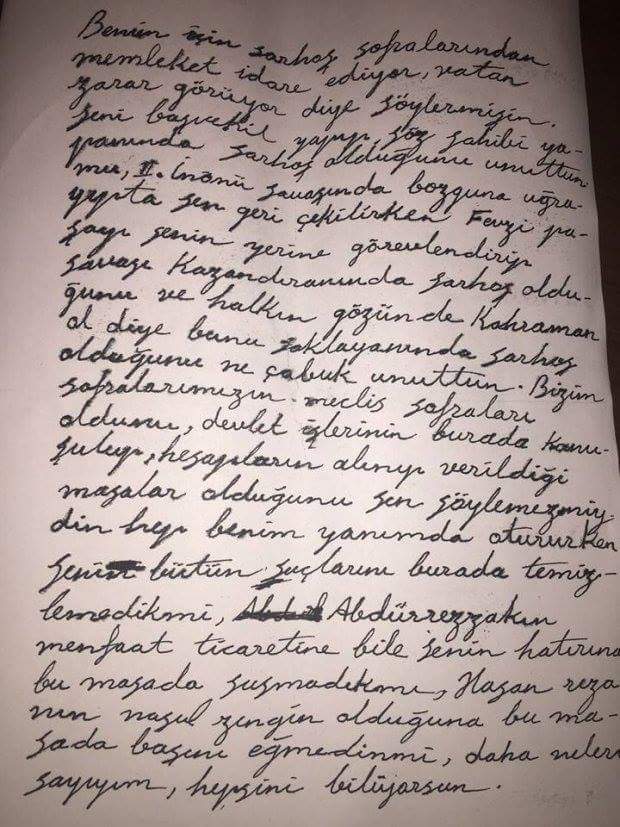 Benim için sarhoş sofralarından
memleket idare ediyor, vatan
zarar görüyor diye söylermişin.
seni başvekil yapıp söz sahibi ya-
panında sarhoş olduğunu unuttun
mu, II. İnönü savaşında bozguna uğra-
yıpta sen geri çekilirken Fevzi pa-
şayı senin yerine görevlendirip
savaşı Kazandıranında sarhoş oldu-
ğunu ve halkın gözünde Kahraman
ol diye bunu saklayanında sarhoş
olduğunu ne çabuk unuttun. Bizim
sofralarımızın meclis sofraları
oldumu, devlet işlerinin burada konu-
şulup, hesapların alınıp verildiği
masalar olduğunu sen söylemezmiy
din hep benim yanımda otururken
Senin bütün suçlarını burada temiz-
lemedikmi, Abdürrezzakın
menfaat ticaretine bile senin hatırına
bu masada susmadıkmı, Hasan rıza
nın nasıl zengin olduğuna bu ma-
sada başını eğmedinmi, daha neleri
sayıyım, hepsini biliyorsun.